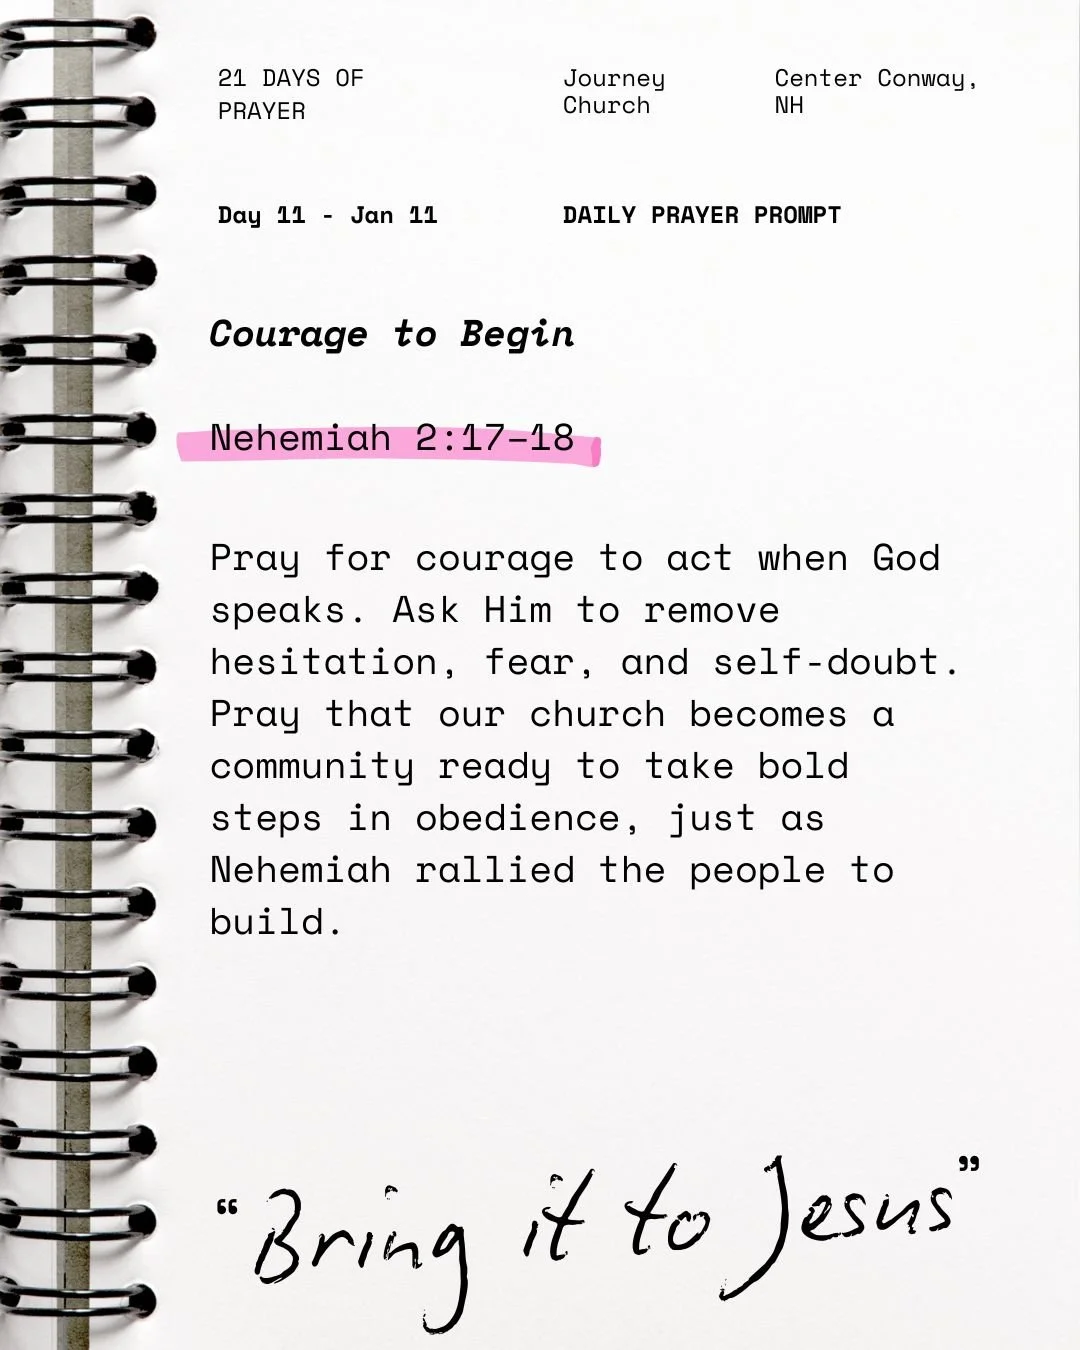 21 DAYS OF
PRAYER
Journey
Church
Center Conway,
NH
Day 11 - Jan 11
DAILY PRAYER PROMPT
Courage to Begin
Nehemiah 2:17–18
Pray for courage to act when God
speaks. Ask Him to remove
hesitation, fear, and self-doubt.
Pray that our church becomes a
community ready to take bold
steps in obedience, just as
Nehemiah rallied the people to
build.
“Bring it to Jesus”